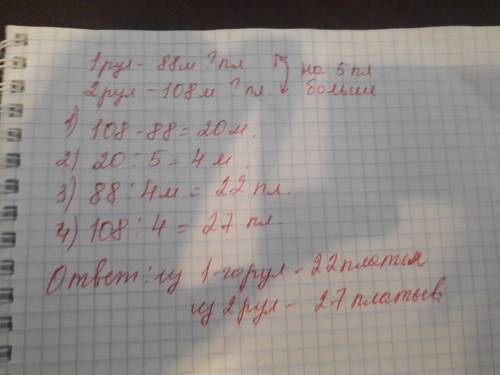 1рул - 88м ? пл на 5 пл.
2рул - 108м ? пл. больше
1) 108 - 88 = 20 м.
2) 20 : 5 = 4 м.
3) 88 : 4м = 22 пл.
4) 108 : 4 = 27 пл.
Ответ: из 1-го рул - 22 платья
из 2 рул - 27 платьев